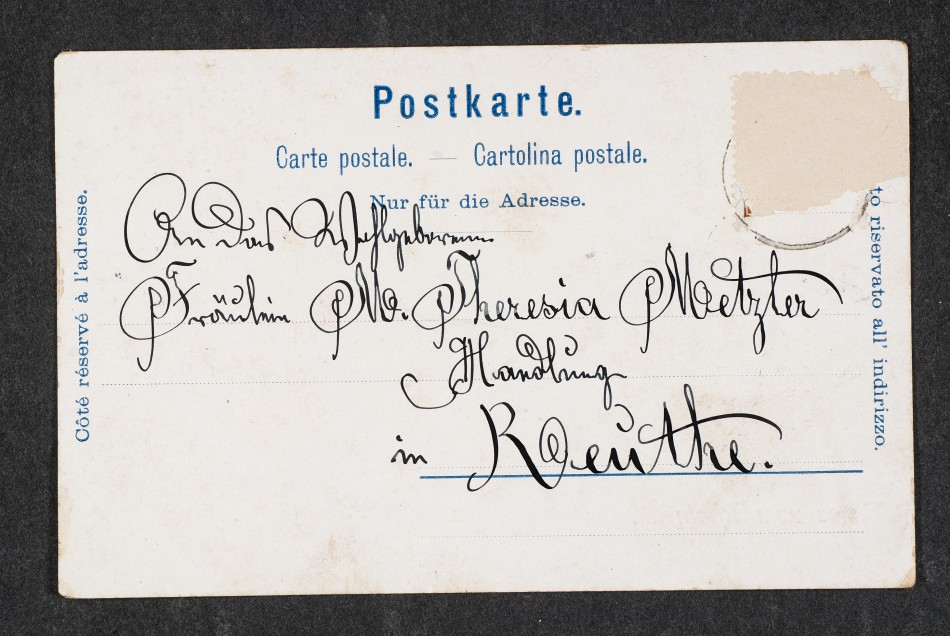 Postkarte.
Carte postale. — Cartolina postale.
Nur für die Adresse.
Côté réservé à l'adresse.
to riservato all' indirizzo.
An das Wohlgeborene
Fräulein M. Theresia Metzler
Handlung
in Reuthe.